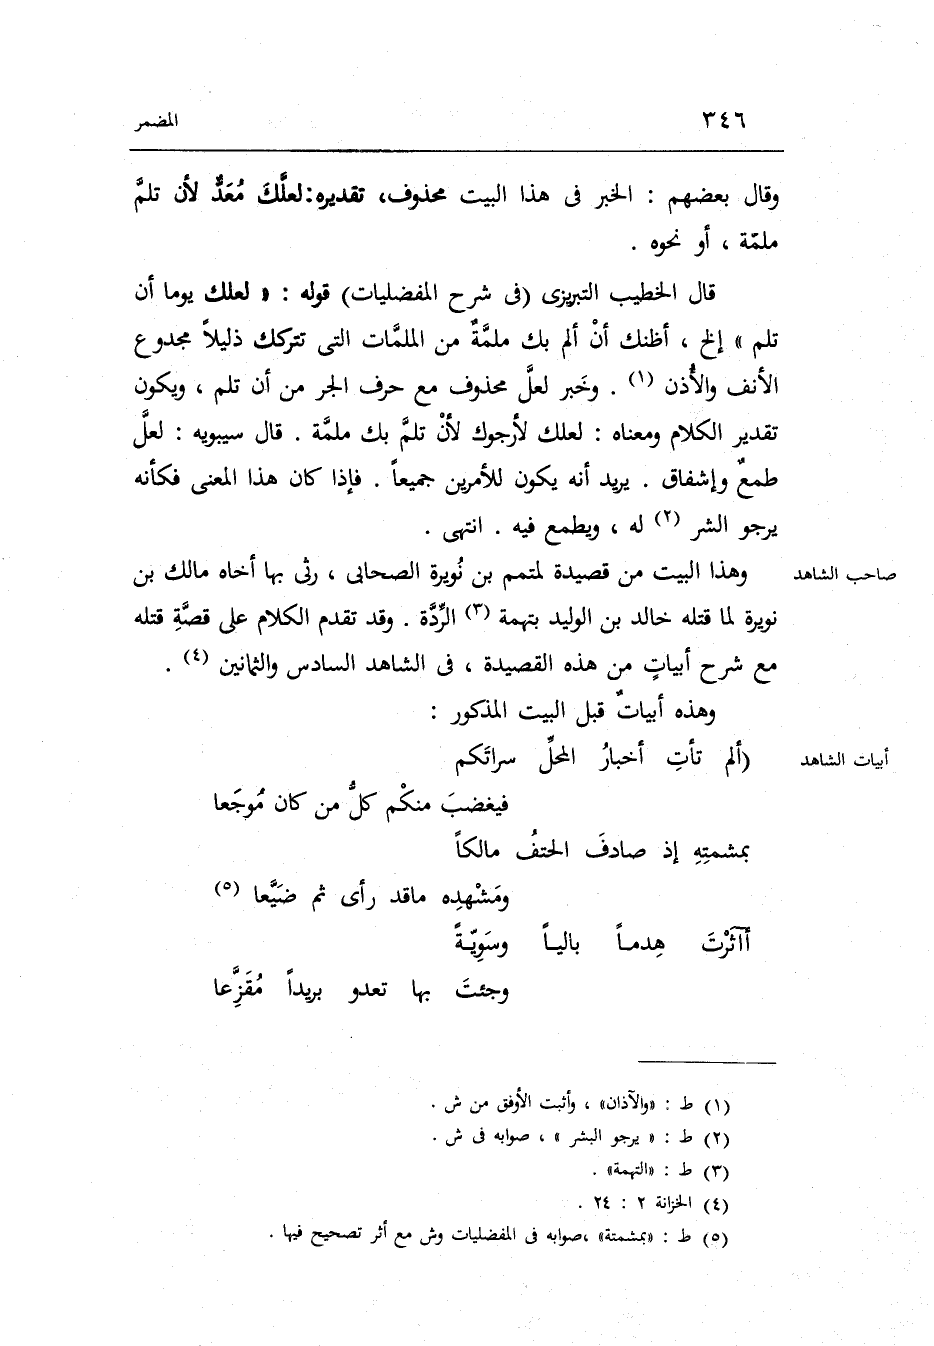 ٣٤٦ المضمر
وقال بعضهم : الخبر فى هذا البيت محذوف، تقديره: لعلَّكَ مُعَدٌّ لأن تلمَّ
ملمّة ، أو نحوه .
قال الخطيب التبريزى (فى شرح المفضليات) قوله : « لعلك يوما أن
تلم » إلخ ، أظنك أنْ ألم بك ملمَّةٌ من الملمَّات التى تتركك ذليلاً مجدوع
الأنف والأُذن (١) . وخَبر لعلَّ محذوف مع حرف الجر من أن تلم ، ويكون
تقدير الكلام ومعناه : لعلك لأرجوك لأنْ تلمَّ بك ملمَّة . قال سيبويه : لعلَّ
طمعٌ وإشفاق . يريد أنه يكون للأمرين جميعاً . فإذا كان هذا المعنى فكأنه
يرجو الشر (٢) له ، ويطمع فيه . انتهى .
صاحب الشاهد وهذا البيت من قصيدة لمتمم بن نُويرة الصحابى ، رثى بها أخاه مالك بن
نويرة لما قتله خالد بن الوليد بتهمة (٣) الرِّدَّة . وقد تقدم الكلام على قصَّةِ قتله
مع شرح أبياتٍ من هذه القصيدة ، فى الشاهد السادس والثمانين (٤) .
وهذه أبياتٌ قبل البيت المذكور :
أبيات الشاهد (ألم تأتِ أخبارُ المحلِّ سراتَكم
فيغضبَ منكْم كلُّ من كان مُوجَعا
بمشمتِهِ إذ صادفَ الحتفُ مالكاً
ومَشْهدِه ماقد رأى ثم ضيَّعا (٥)
أآثرْتَ هِدمـاً باليـاً وسَوِيّـةً
وجئتَ بها تعدو بريداً مُقَزَّعا
(١) ط : «والآذان» ، وأثبت الأوفق من ش .
(٢) ط : « يرجو البشر » ، صوابه فى ش .
(٣) ط : «التهمة» .
(٤) الخزانة ٢ : ٢٤ .
(٥) ط : «بمشمتة» ،صوابه فى المفضليات وش مع أثر تصحيح فيها .